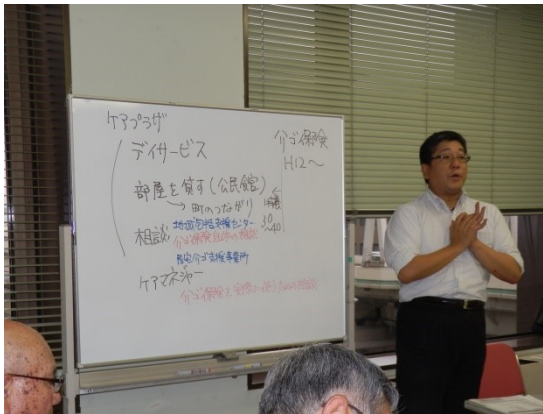 ケアプラザ
デイサービス
部屋を貸す(公民館)
町のつながり
相談
地域包括支援センター
介ゴ保険以外の相談
居宅介ゴ支援事業所
ケアマネジャー
介ゴ保険を実際に使うための相談
介ゴ保険
H12〜
30
〜40